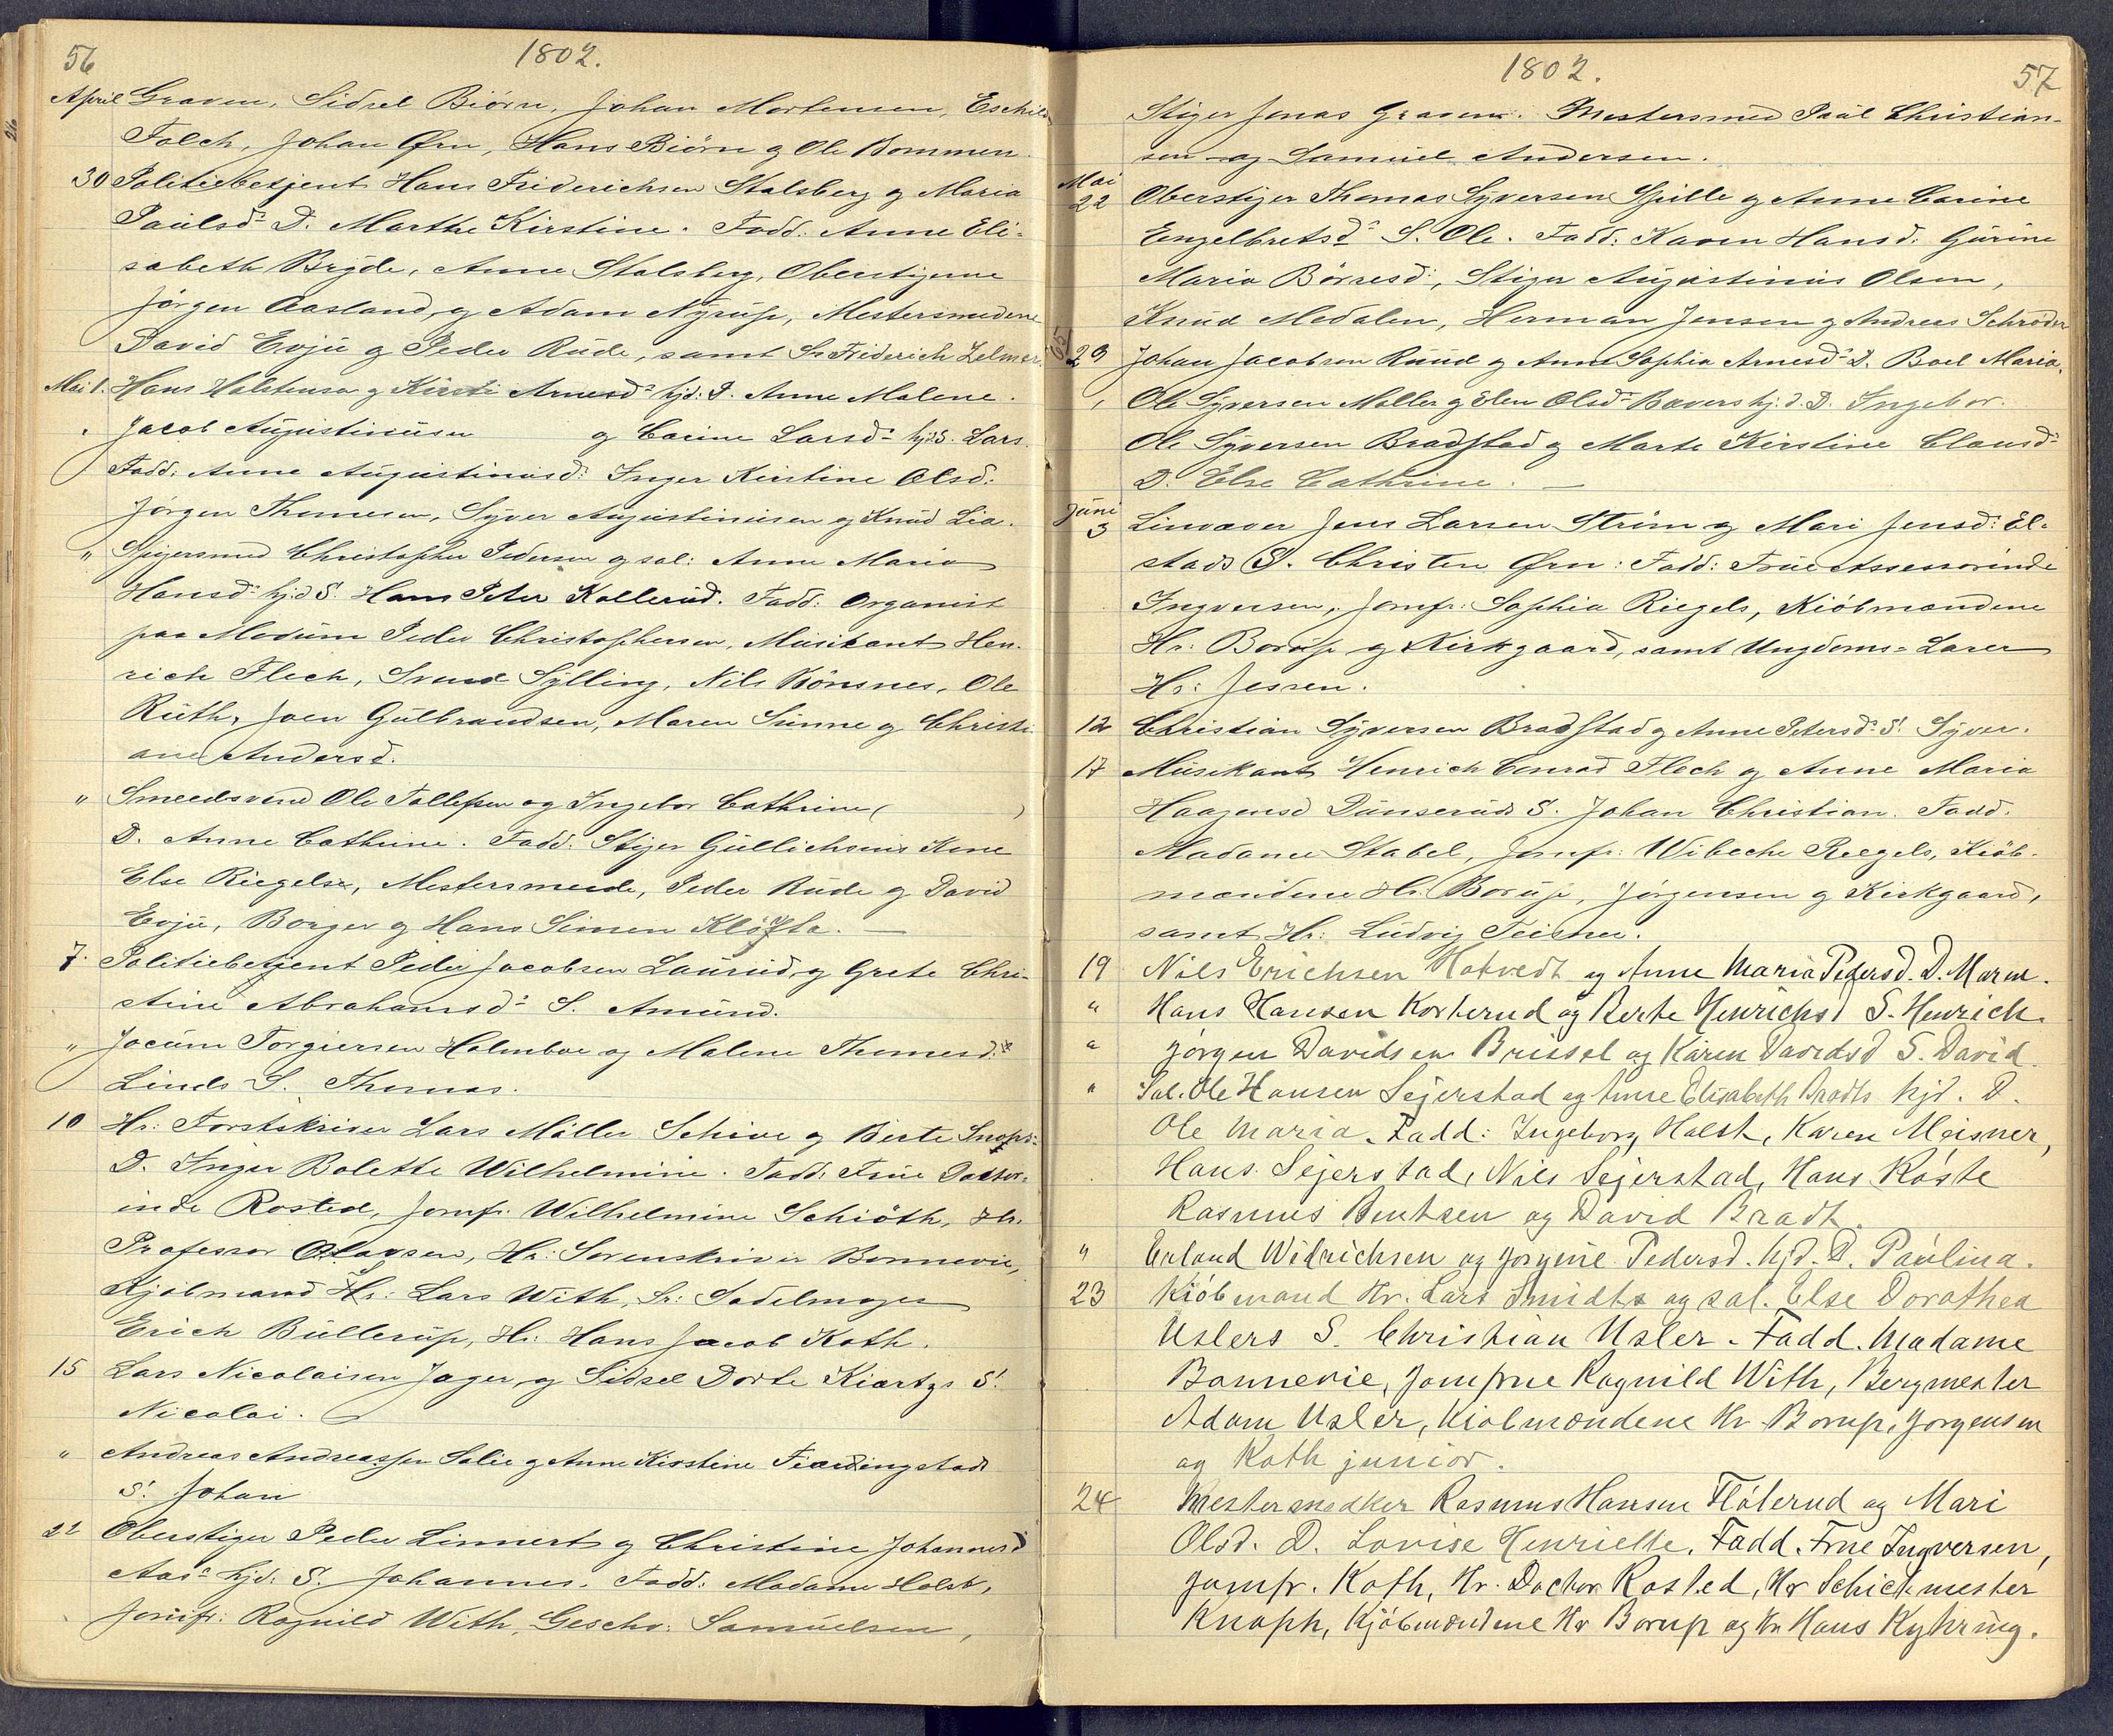 56
1802.
April Graven, Sidsel Biörn, Johan Mortensen, Eschild
Falch, Johan Örn, Hans Biörn og Ole Bommen.
30 Politiebetjent Hans Friderichsen Stalsberg og Maria
Paülsd: D. Marthe Kirstine. Fadd: Anne Eli-
sabeth Bryde, Anne Stalsberg, Oberstigerne
Jörgen Aasland, og Adam Nyrüp, Mestersmedene
David Evjü og Peder Rüde, samt Sr Friderich Zelmer.
Mai 1. Hans Halstensen og Kirsti Arnesd: hjd: D. Anne Malene.
" Jacob Aügüstinüsen og Carine Larsd: hjd S. Lars.
Fadd: Anne Aügüstinüsd: Inger Kirstine Olsd:
Jörgen Thomesen, Syver Aügüstinüsen og Knüd Lia.
" Spigersmed Christopher Pedersen og sal: Anne Maria
Hansd: hjd S. Hans Peter Kollerüd. Fadd: Organist
paa Modüm Peder Christophersen, Müsikant Hen-
rich Flech, Svend Sylling, Nils Hönsnes, Ole
Rüth, Joen Gülbrandsen, Maren Sünne og Christi-
ane Andersd.
" Smeedsvend Ole Tollefsen og Ingebor Cathrine ( )
D. Anne Cathrine. Fadd: Stiger Güllichsens Kone
Else Riegels, Mestersmede, Peder Rüde og David
Evjü, Borger og Hans Simen Klöfta. —
7. Politiebetjent Peder Jacobsen Laürüd, og Grete Chri-
stine Abrahamsd: S. Amünd.
" Jocüm Torgiersen Holmboe og Malene Thomesd:
Linds S. Thomas.
10 Hr: Forstskriver Lars Müller Schive og Berte Knophs
D. Inger Bolette Wilhelmine. Fadd: Frue Doctor-
inde Rosted, Jomfr: Wilhelmine Schiöth, Hr.
Professor Olavsen, Hr: Sorenskriver Bonnevie,
Kjöbmand Hr: Lars With, Sr: Sadelmager
Erich Büllerüp, Hr: Hans Jacob Koth.
15 Lars Nicolaisen Jager, og Sidsel Dorte Kiærtgs S.
Nicolai.
" Andreas Andreassen Solie og Anne Kirstine Fiærdingstads
S. Johan
22 Oberstiger Peder Linnert og Christine Johannesd
Aas: hjd: S. Johannes. Fadd: Madame Holst,
Jomfr: Ragnild With, Geschv: Samüelsen,
1802.
57
Stiger Jonas Graven. Mestersmed Paül Christian-
sen og Samüel Andersen.
Mai
22 Oberstiger Thomas Syversen Spille og Anne Carine
Engelbretsd: S. Ole. Fadd: Karen Hansd: Gürine
Maria Börresd:, Stiger Aügüstinüs Olsen,
Knüd Medalen, Herman Jensen og Andreas Schröder
29 Johan Jacobsen Rüüd og Anne Sophia Arnesd: D. Boel Maria.
" Ole Syversen Møller og Elen Olsd: Bævers hjd. D. Ingebor.
Ole Syversen Bradstad og Marte Kirstine Clausd:
D. Else Cathrine. —
Jüni
3 Linvæver Jens Larsen Ström og Mari Jensd: El-
stads S. Christen Örn: Fadd: Früe Assessorinde
Ingversen, Jomfr: Sophia Riegels, Kiöbmændene
Hr: Borüp og Kirkgaard, samt Ungdoms-Lærer
Hr: Jessen.
12 Christian Syversen Bradstad og Anne Petersd: S. Syver.
17 Müsikant Henrich Conrad Flech og Anne Maria
Haagensd Dünserüds S. Johan Christian. Fadd.
Madame Stabel, Jomfr: Wibeche Riegels, Kiöb-
mændene Hr. Borüp, Jörgensen og Kirkgaard,
samt Hr: Lüdvig Teisner.
19 Nils Erichsen Hotvedt og Anne Maria Pedersd. D. Maren.
" Hans Hansen Korterud og Berte Henrichsd S. Henrich.
" Jörgen Davidsen Brissel og Karen Davidsd S. David.
" Sal. Ole Hansen Sejerstad og Anne Elisabeth Bradts hjd. D.
Ole Maria. Fadd: Ingeborg Holst, Karen Meisner,
Hans Sejerstad, Nils Sejerstad, Hans Röste
Rasmus Bentsen og David Bradt.
" Erland Widrichsen og Jorgine Pedersd. hjd. D. Paulina.
23 Kiöbmand Hr. Lars Smidts og sal. Else Dorothea
Uslers S. Christian Usler. Fadd. Madame
Bonnevie, Jomfrue Ragnild With, Bergmester
Adam Usler, Kiøbmændene Hr Borup, Jorgensen
og Koth junior.
24 Mestersnedker Rasmus Hansen Flølerud og Mari
Olsd. D. Lovise Henriette. Fadd. Frue Ingversen,
Jomfr. Koth, Hr. Doctor Rosted, Hr Schictmester
Knoph, Kjöbmændene Hr Borup og Hr. Hans Kyhring.